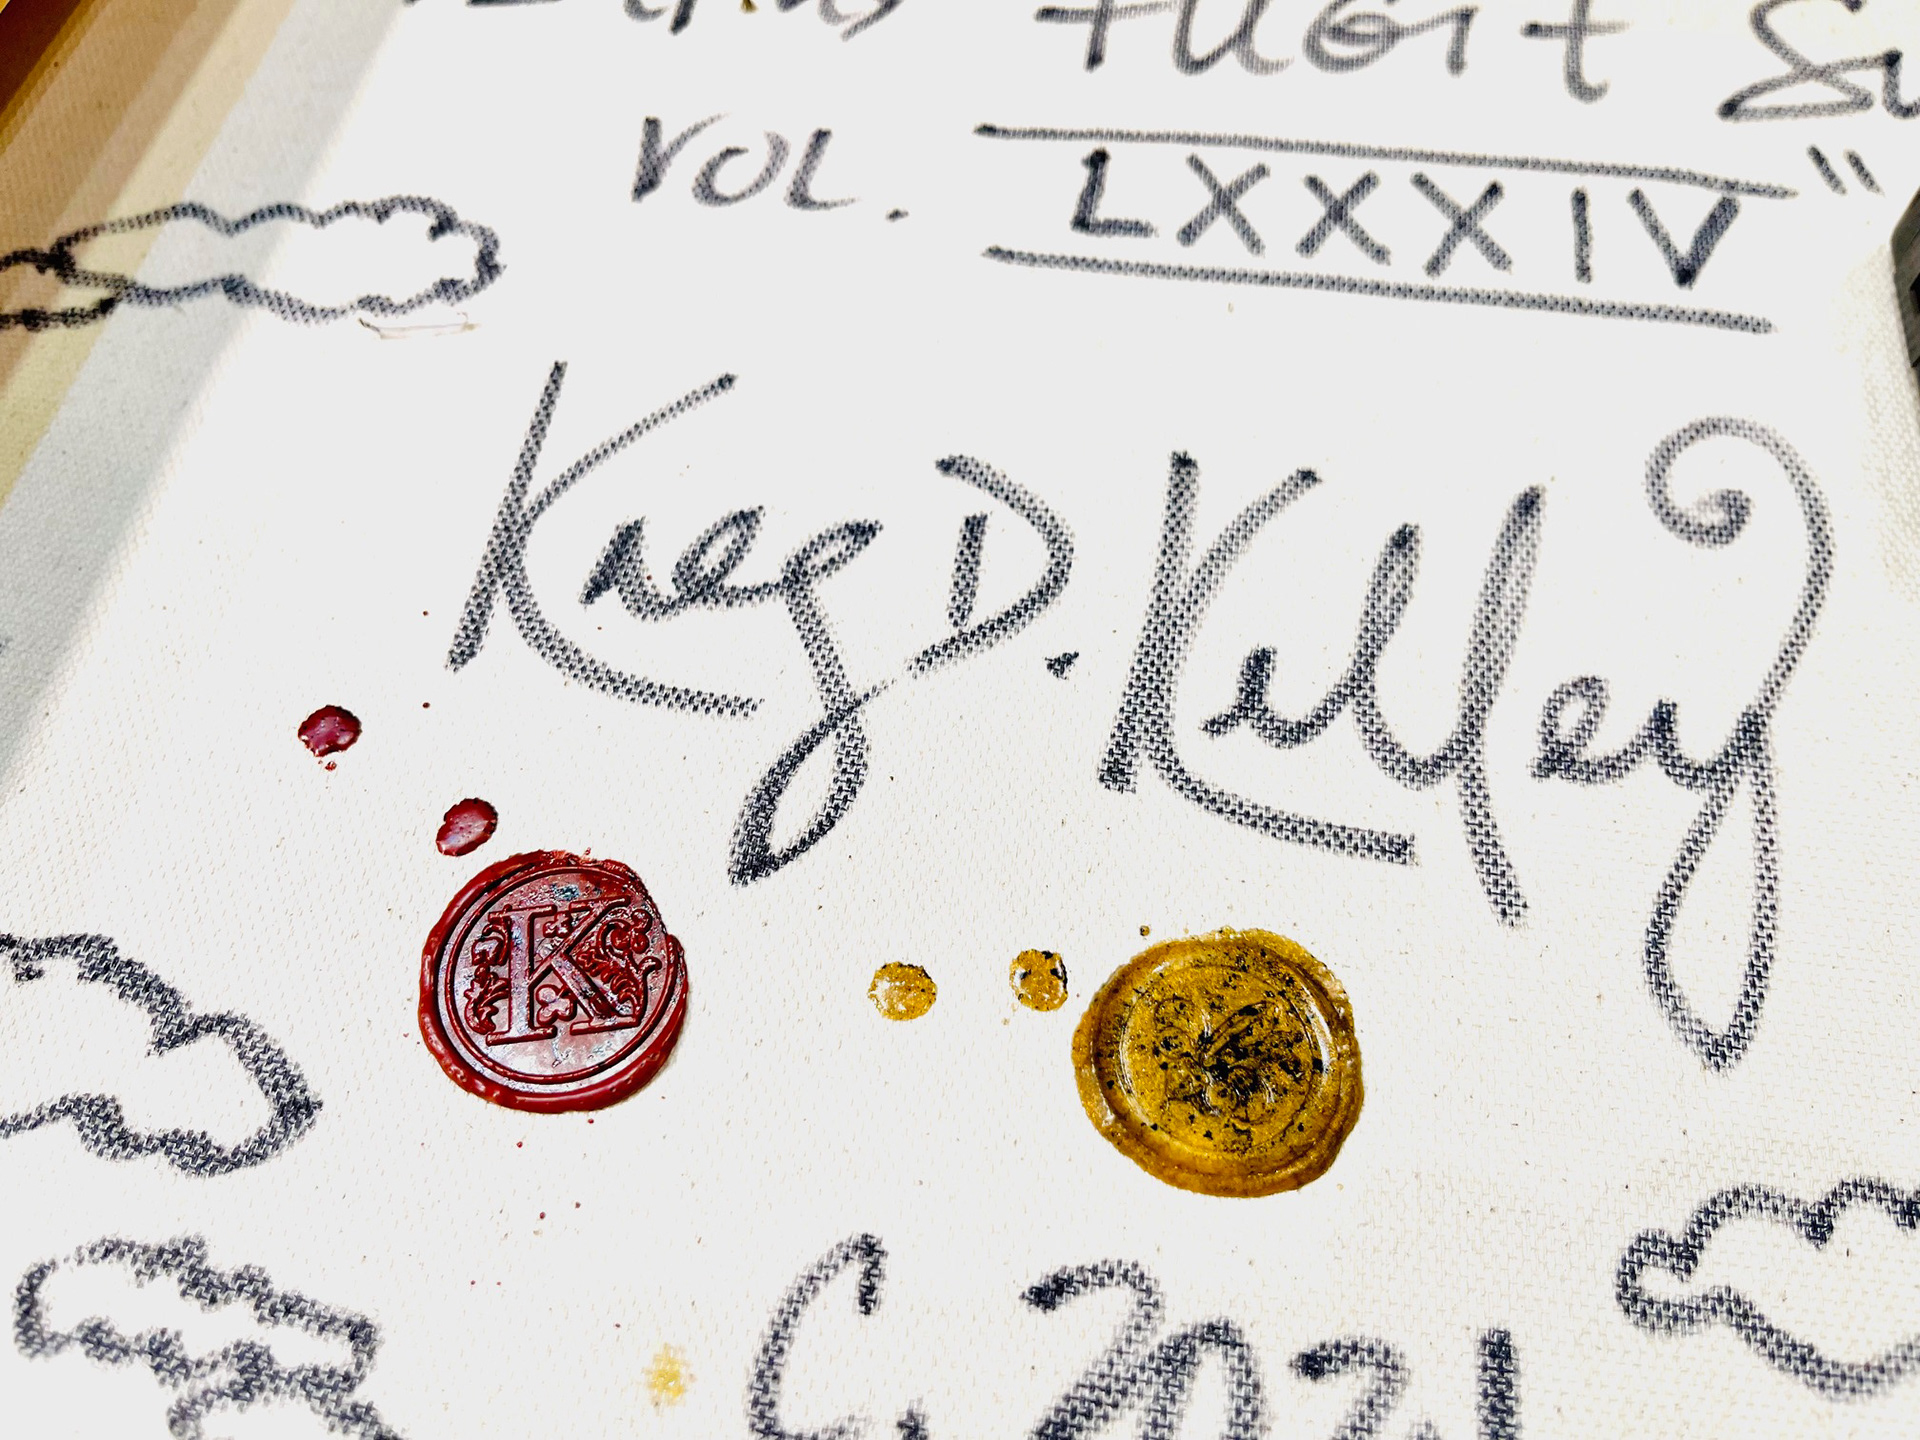 fugit
VOL. LXXXIV"
Kreg D. Kelley
K
C. 2021